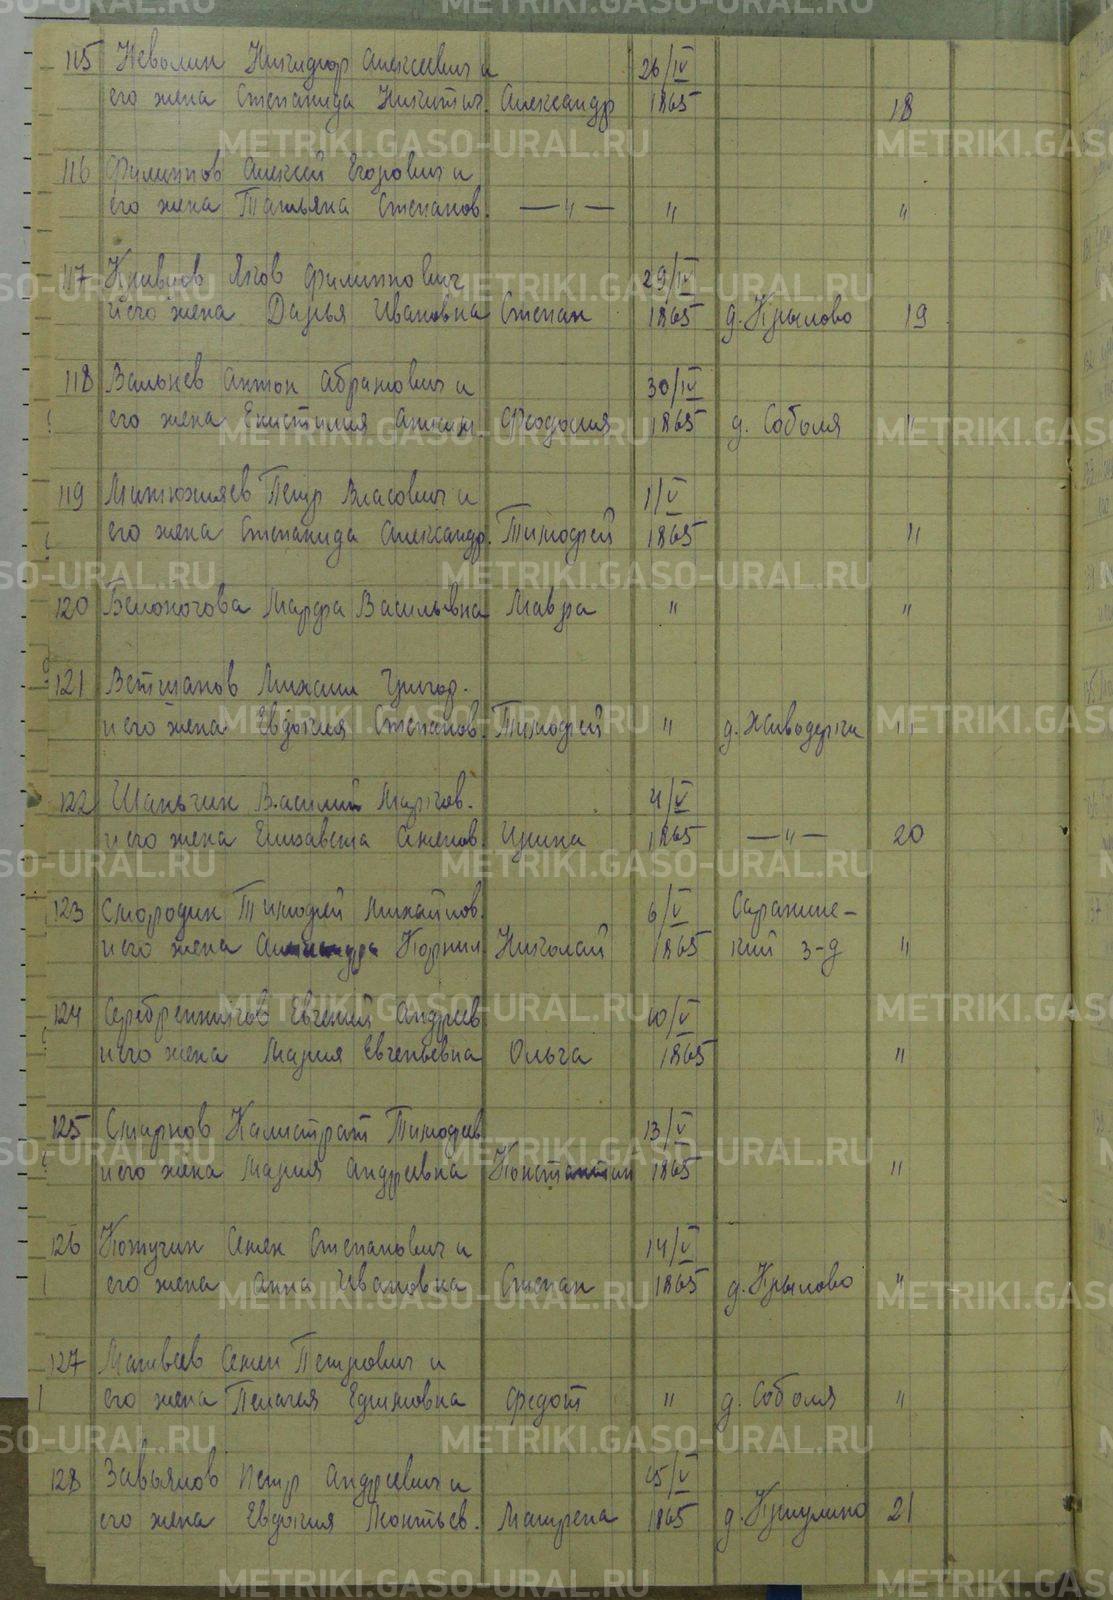 115 Неволин Никифор Алексеевич и 26/IV
его жена Степанида Никитич. Александр 1865 18
116 Филиппов Алексей Егорович и
его жена Татьяна Степанов. —"— " "
117 Кривцов Яков Филиппович 29/IV
и его жена Дарья Ивановна Степан 1865 д. Крылово 19
118 Антон Абрамович и 30/IV
его жена Феодосия 1865 д. Соболя "
119 Петр Власович и 1/V
его жена Степанида Александр. Тимофей 1865 "
120 Белоногова Марфа Васильевна Мавра " "
121 Ветшанов Михаил Григор.
и его жена Евдокия Степанов. Тимофей " д. Живодерка "
122 Шанькин Василий Марков. 4/V
и его жена Елизавета Семенов. Ирина 1865 —"— 20
123 Смородин Тимофей Михайлов. 6/V Саранинс-
и его жена Александра Корнил. Николай 1865 кий з-д "
124 Серебренников Евгений Андреев 10/V
и его жена Мария Евгеньевна Ольга 1865 "
125 Смирнов Калистрат Тимофеев 13/V
и его жена Мария Андреевна Константин 1865 "
126 Семен Степанович и 14/V
его жена Анна Ивановна Степан 1865 д. Крылово "
127 Матвеев Семен Петрович и
его жена Пелагея Ефимовна Федот " д. Соболя "
128 Завьялов Петр Андреевич и 15/V
его жена Евдокия Леонтьев. Матрена 1865 21
METRIKI.GASO-URAL.RU